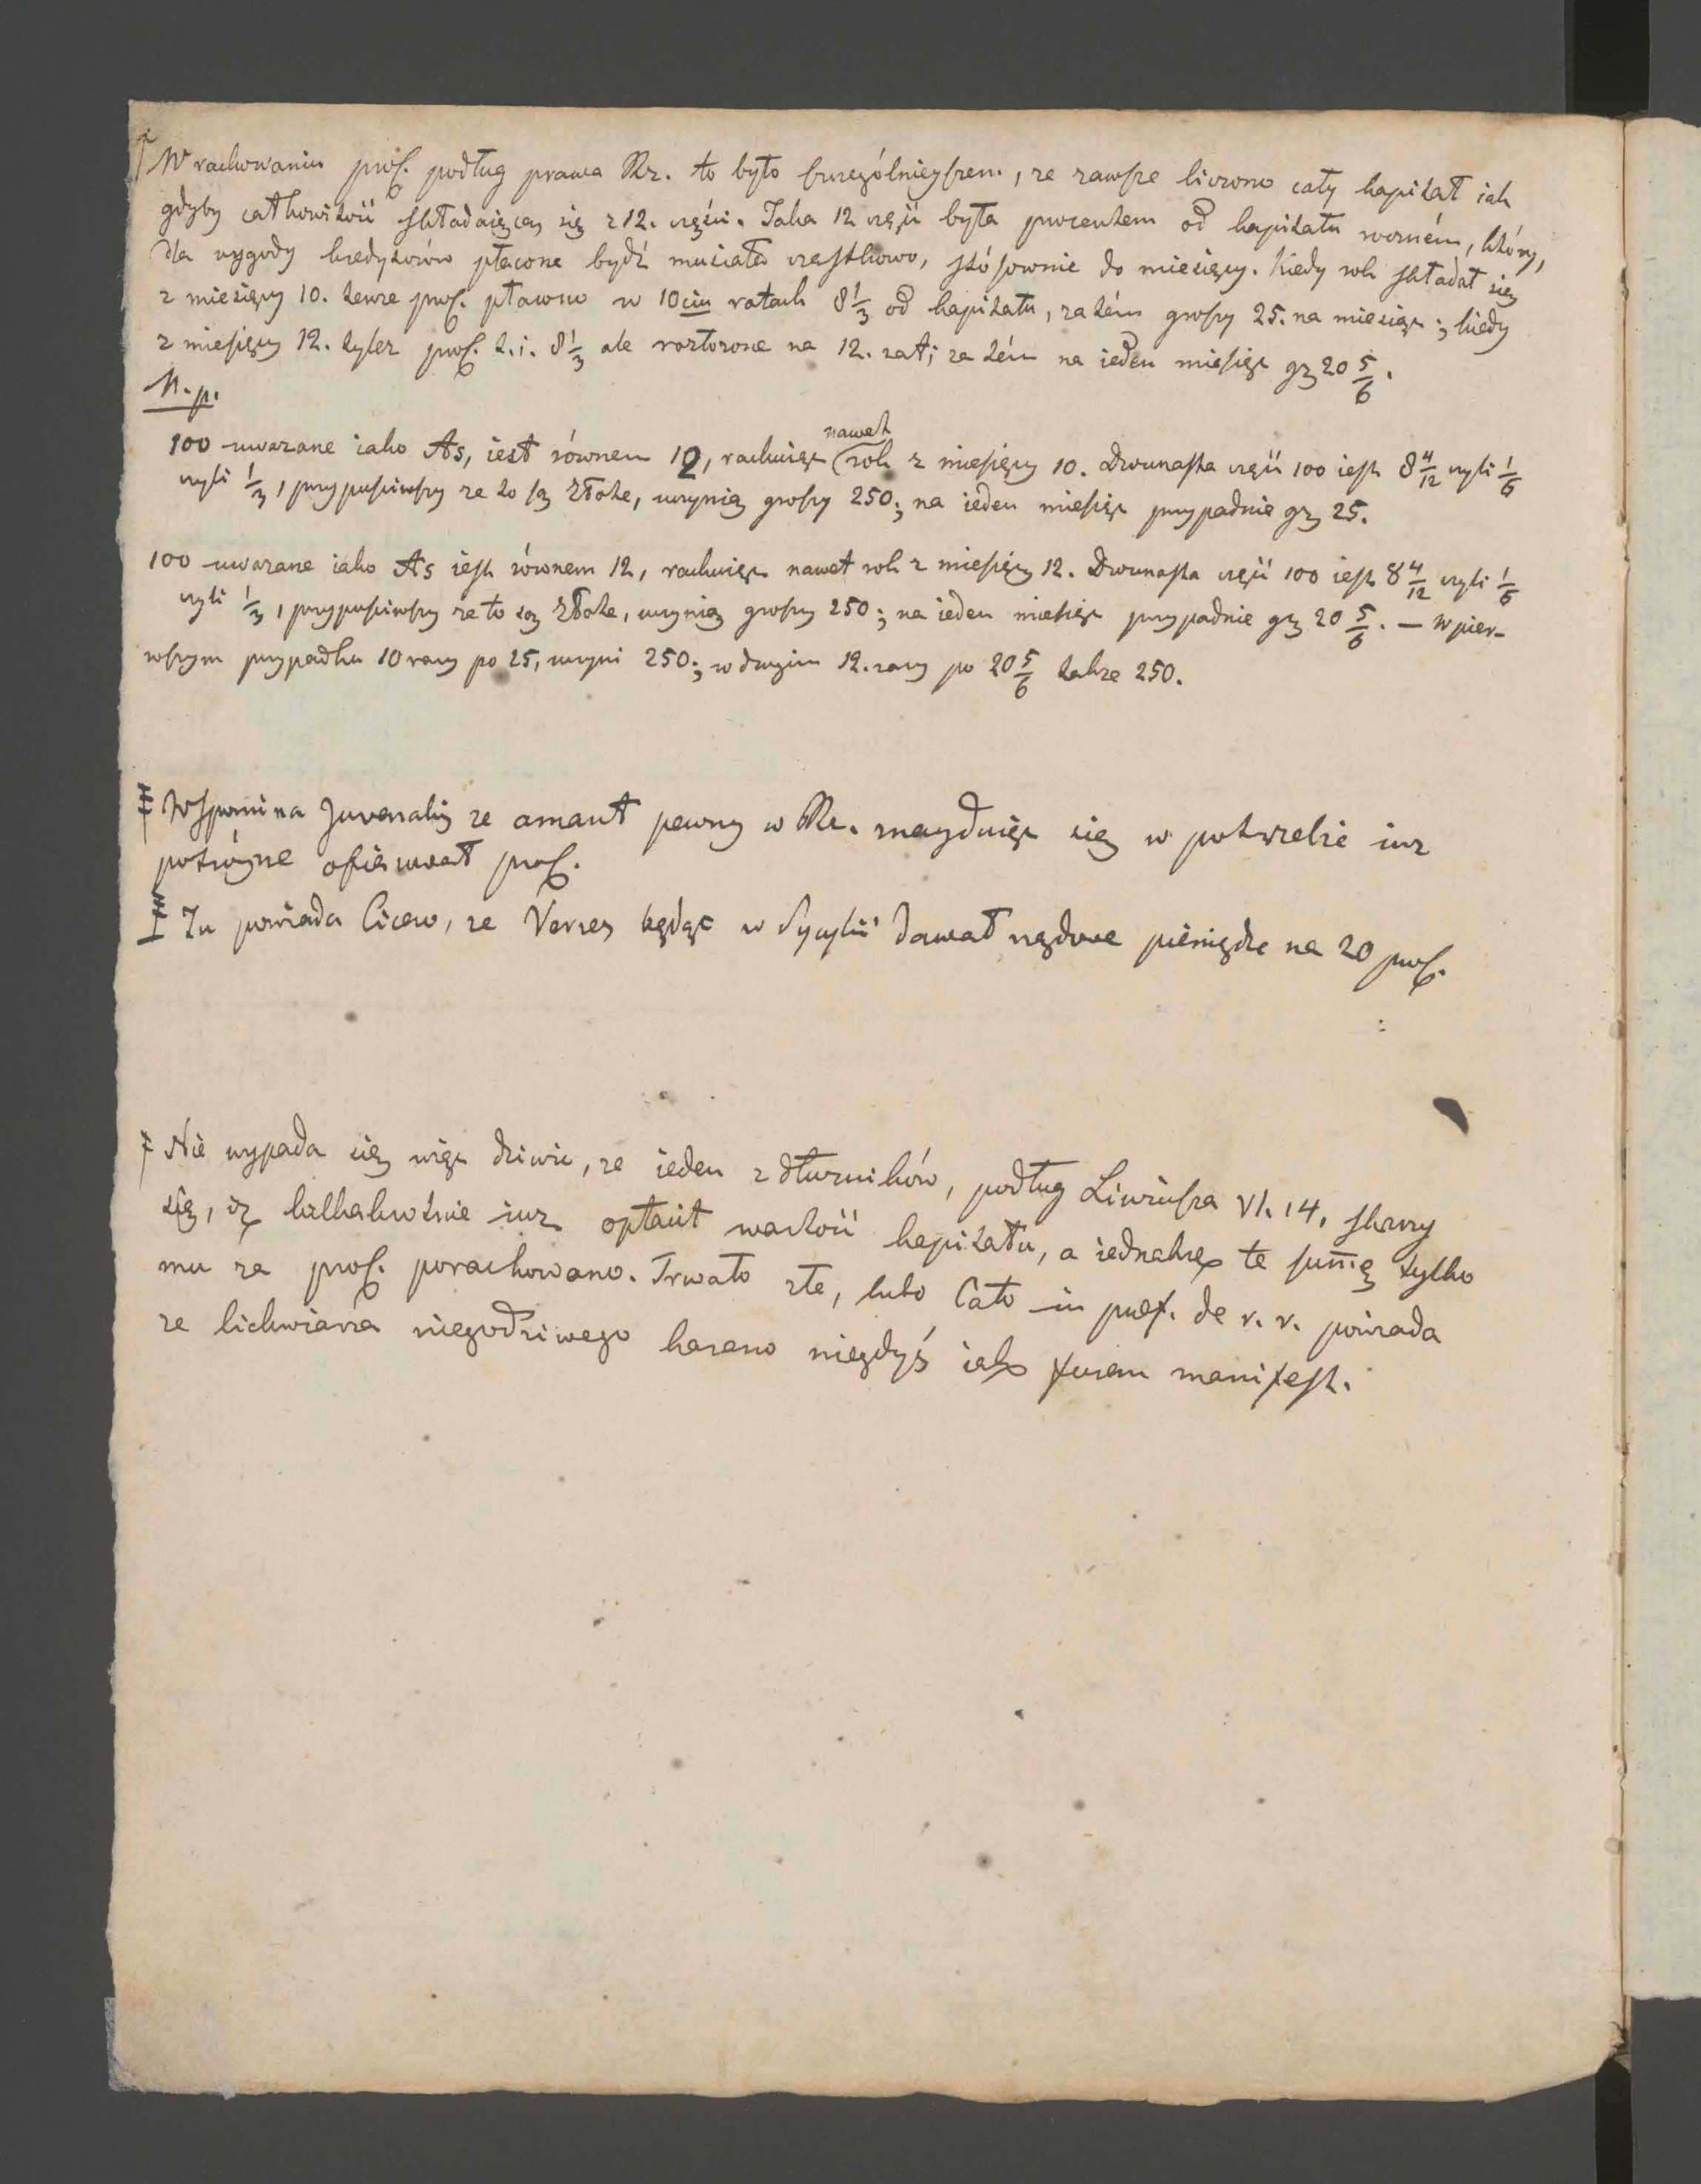 W rachowaniu prof. podług prawa Rz. to było szczególnieyszem, ze zawsze liczono cały kapitał iak
gdyby całkowitość składaiącą się z 12. części. Taka 12 część była procentem od kapitału rocznem, który,
dla wygody kredytorów płacone bydź musiało cząstkowo, stósownie do miesięcy. Kiedy rok składał się
z miesięcy 10. tenże prof. płacono w 10ciu ratach 8 1/3 od kapitału, zatém groszy 25. na miesiąc; kiedy
z miesięcy 12. tylez prof. t.i. 8 1/3 ale rozłozone na 12. rat; za tém na ieden miesiąc gr 20 5/6.
N. p.
100 uwazane iako As, iest równem 12, rachuiąc nawet rok z miesięcy 10. Dwunasta część 100 iest 8 4/12 czyli 1/6
czyli 1/3, przypuściwszy ze to są Złote, uczynią groszy 250; na ieden miesiąc przypadnie gr 25.
100 uwazane iako As iest równem 12, rachuiąc nawet rok z miesięcy 12. Dwunasta część 100 iest 8 4/12 czyli 1/6
czyli 1/3, przypuściwszy ze to są Złote, uczynią groszy 250; na ieden miesiąc przypadnie gr 20 5/6. — W pier-
wszym przypadku 10 razy po 25, uczyni 250; w drugim 12. razy po 20 5/6 takze 250.
Wspomina Juvenalis ze amant pewny w Rz. znayduiąc się w potrzebie iuz
potróyne ofiarował prof.
Tu powiada Cicero, ze Verres będąc w Sycylii dawał rządowe pieniądze na 20 prof.
Nie wypada się więc dziwić, ze ieden z dłuzników, podług Liwiusza VI. 14, skarzy
się, iż kilkakrotnie iuz opłacił wartość kapitału, a iednakze te summę tylko
mu za prof. porachowano. Trwało złe, lubo Cato in praef. de r. r. powiada
ze lichwiarza niegodziwego karano niegdyś iako furem manifest.